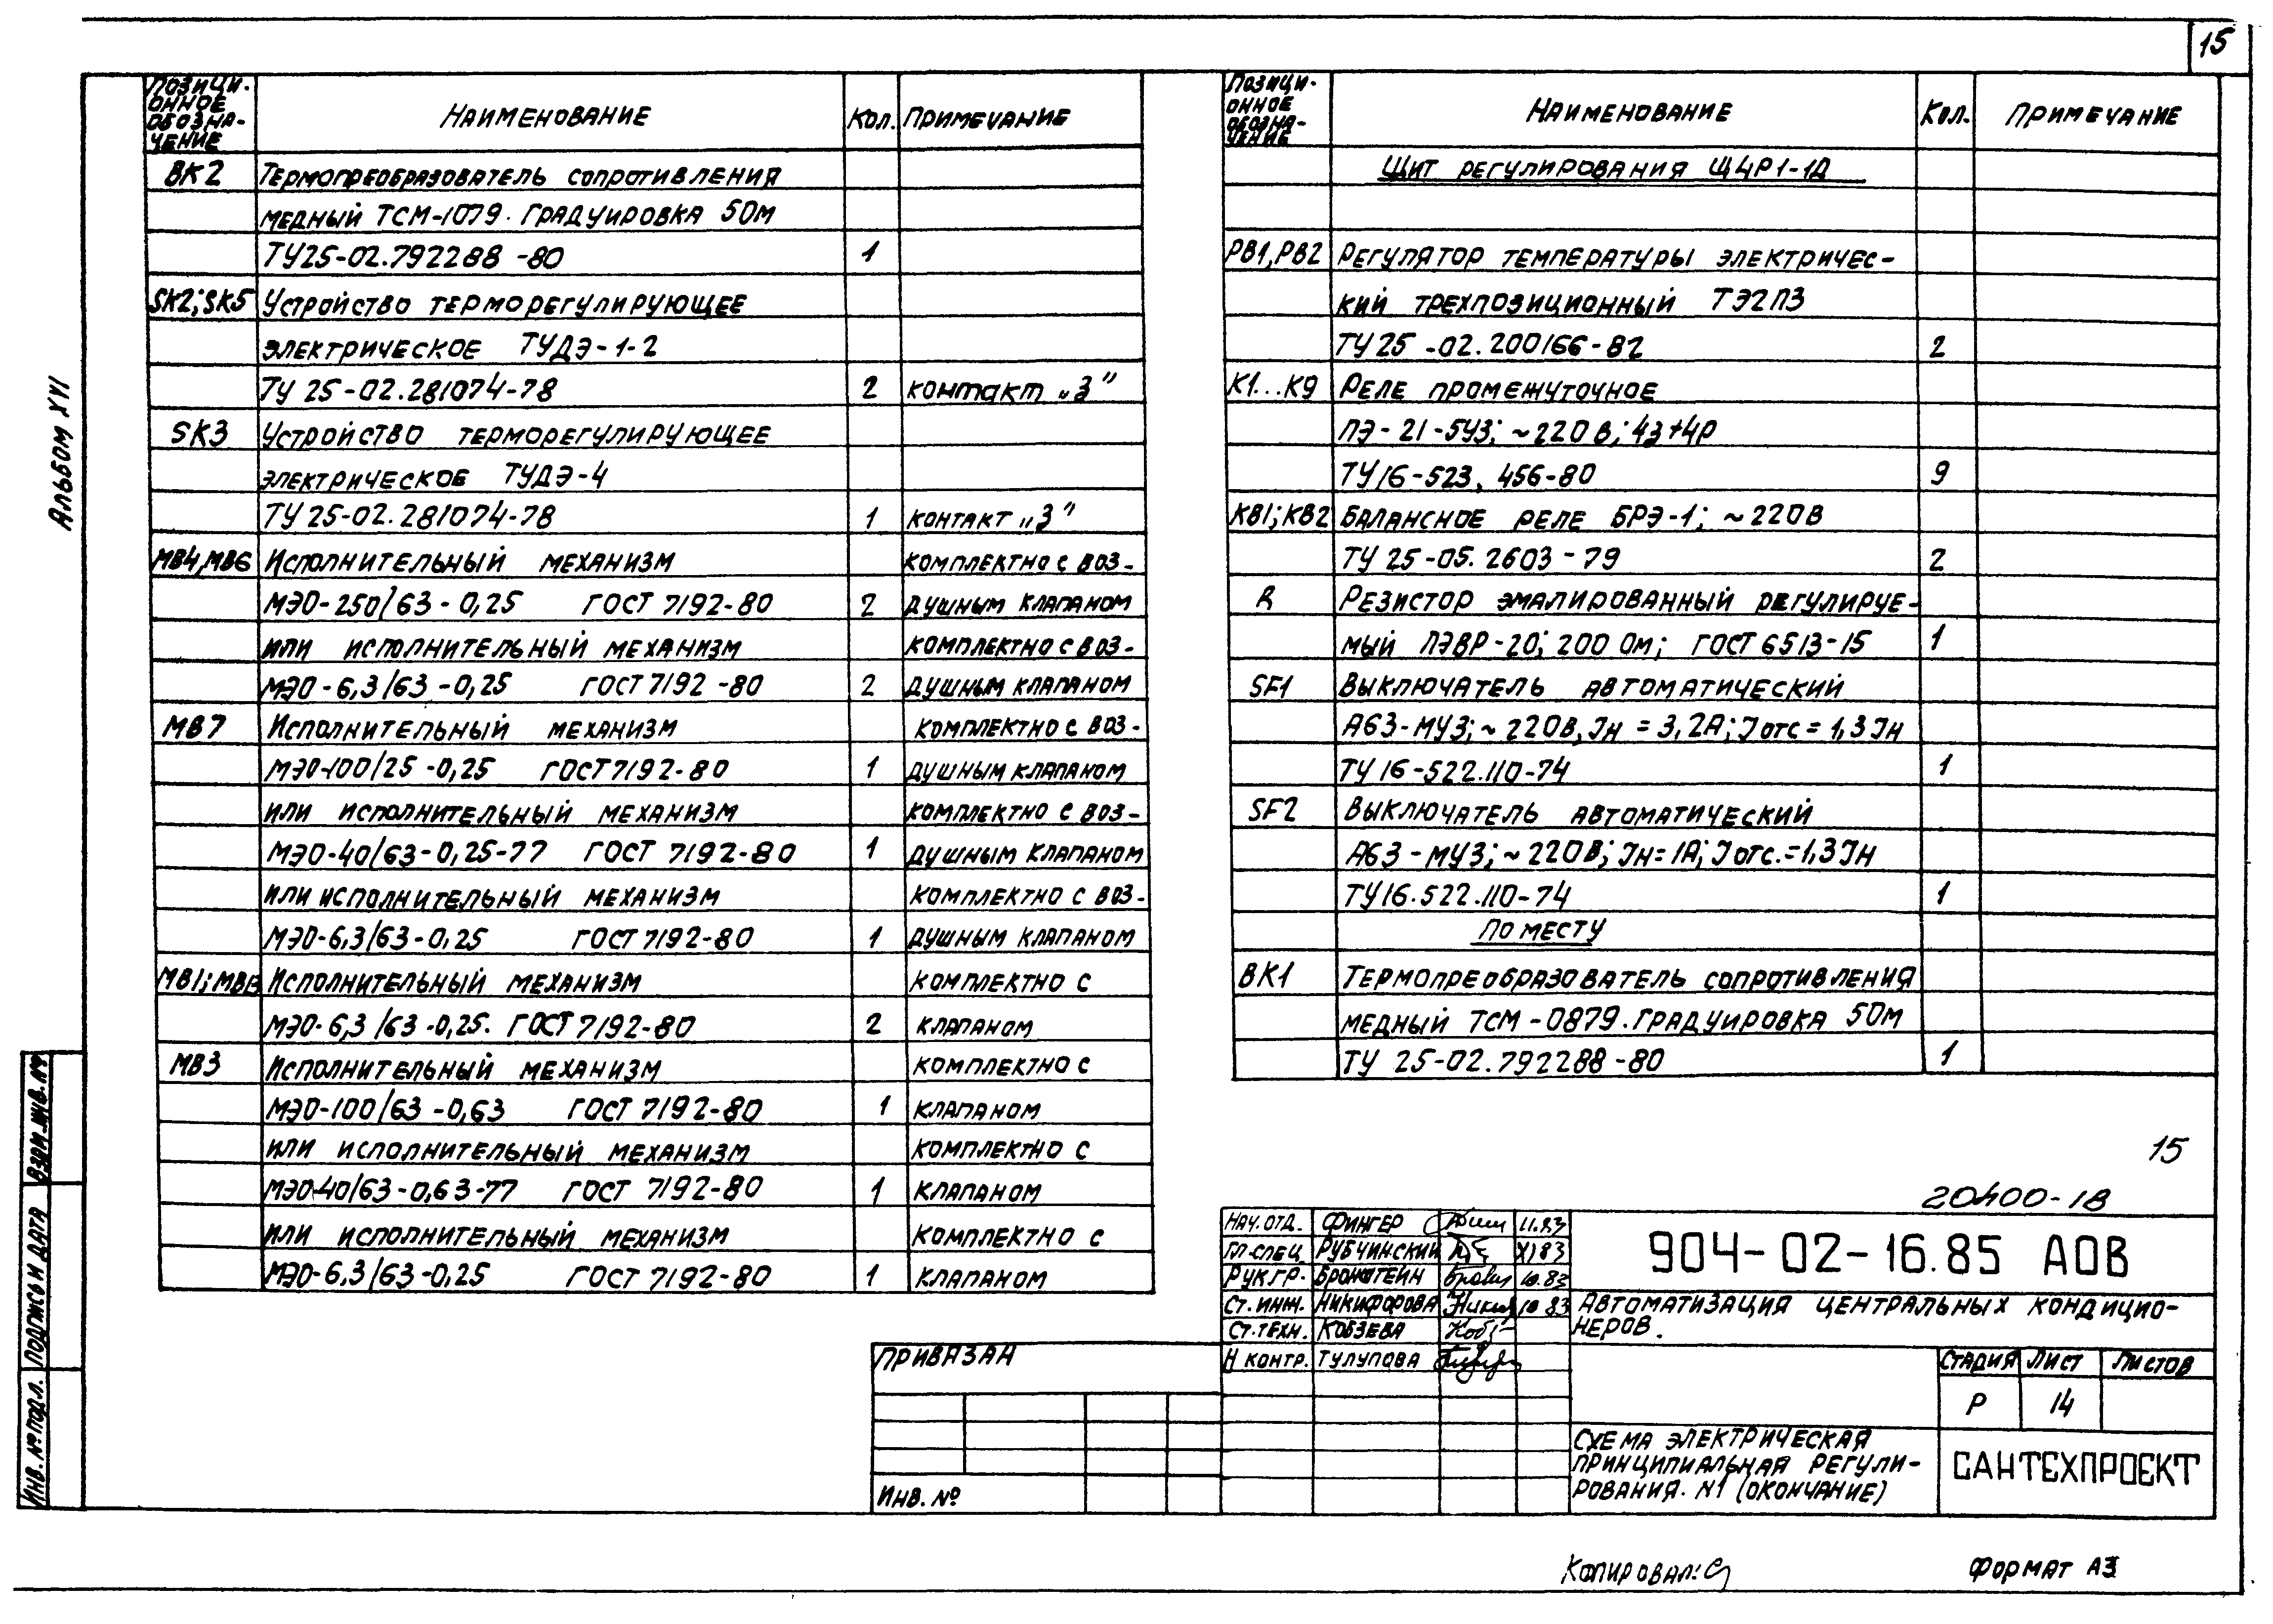 15
Альбом XVI
Позици-
онное
обозна-
чение
Наименование
Кол.
Примечание
ВК2 Термопреобразователь сопротивления
медный ТСМ-1079. Градуировка 50м
ТУ25-02.792288-80 1
SK2; SK5 Устройство терморегулирующее
электрическое ТУДЭ-1-2
ТУ 25-02.281074-78 2 контакт „З"
SK3 Устройство терморегулирующее
электрическое ТУДЭ-4
ТУ 25-02.281074-78 1 контакт „З"
МВ4, МВ6 Исполнительный механизм комплектно с воз-
МЭО-250/63-0,25 ГОСТ 7192-80 2 душным клапаном
или исполнительный механизм комплектно с воз-
МЭО-6,3/63-0,25 ГОСТ 7192-80 2 душным клапаном
МВ7 Исполнительный механизм комплектно с воз-
МЭО-100/25-0,25 ГОСТ 7192-80 1 душным клапаном
или исполнительный механизм комплектно с воз-
МЭО-40/63-0,25-77 ГОСТ 7192-80 1 душным клапаном
или исполнительный механизм комплектно с воз-
МЭО-6,3/63-0,25 ГОСТ 7192-80 1 душным клапаном
МВ1; Исполнительный механизм комплектно с
МЭО-6,3/63-0,25. ГОСТ 7192-80 2 клапаном
МВ3 Исполнительный механизм комплектно с
МЭО-100/63-0,63 ГОСТ 7192-80 1 клапаном
или исполнительный механизм комплектно с
МЭО-40/63-0,63-77 ГОСТ 7192-80 1 клапаном
или исполнительный механизм комплектно с
МЭО-6,3/63-0,25 ГОСТ 7192-80 1 клапаном
Позици-
онное
обозна-
чение
Наименование
Кол.
Примечание
Щит регулирования Щ4Р1-1Д
РВ1, РВ2 Регулятор температуры электричес-
кий трехпозиционный ТЭ2П3
ТУ 25-02.200166-82 2
К1...К9 Реле промежуточное
ПЭ-21-5У3; ~220В; 4з+4р
ТУ16-523.456-80 9
КВ1; КВ2 Балансное реле БРЭ-1; ~220В
ТУ 25-05.2603-79 2
R Резистор эмалированный регулируе-
мый ПЭВР-20; 200 Ом; ГОСТ 6513-15 1
SF1 Выключатель автоматический
А63-МУ3; ~220В, Iн = 3,2А; Iотс = 1,3Iн
ТУ 16-522.110-74 1
SF2 Выключатель автоматический
А63-МУ3; ~220В; Iн=1А; Iотс.=1,3Iн
ТУ16.522.110-74 1
По месту
ВК1 Термопреобразователь сопротивления
медный ТСМ-0879. Градуировка 50м
ТУ 25-02.792288-80 1
15
20400-18
Нач. отд. Фингер 11.83
Гл. спец Рубчинский XI 83
Рук. гр. Бронштейн 10.83
Ст. инж. Никифорова 10 83
Ст. техн. Кобзева
Н контр. Тулупова
904-02-16.85 АОВ
Автоматизация центральных кондицио-
неров.
Стадия Лист Листов
Р 14
Схема электрическая
принципиальная регули-
рования. N1 (окончание)
САНТЕХПРОЕКТ
Привязан
Инв. №
Взам. инв. №
Подпись и дата
Инв. № подл.
Копировал:
Формат А3